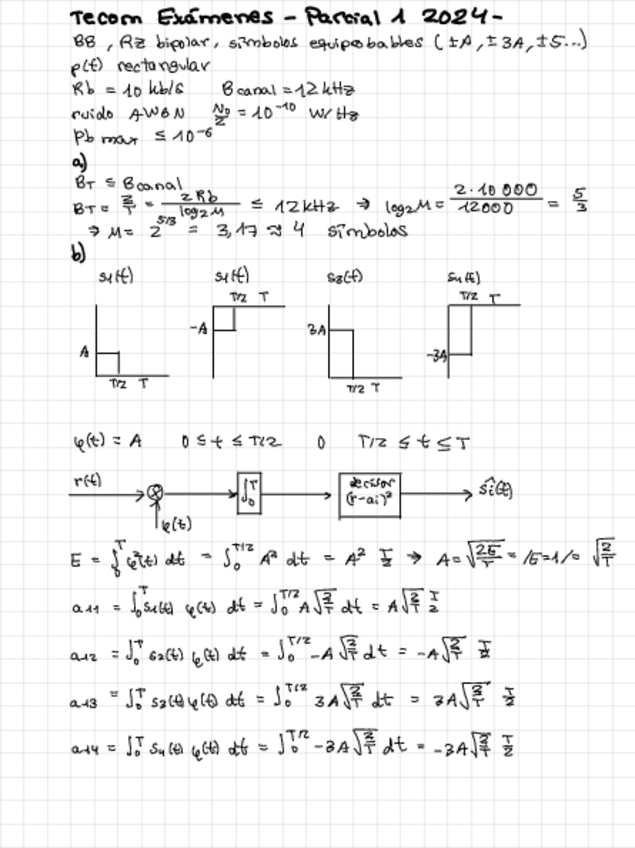 Tecom Exámenes - Parcial 1 2024-
BB, RZ bipolar, símbolos equiprobables (±A, ±3A, ±5...)
p(t) rectangular
Rb = 10 kb/s Bcanal = 12 kHz
ruido AWGN N0/2 = 10^-10 W/Hz
Pb max ≤ 10^-6
a)
BT ≤ Bcanal
BT = 2/T = 2Rb/log2M ≤ 12kHz → log2M = 2·10 000/12000 = 5/3
→ M = 2^5/3 = 3,17 ≈ 4 símbolos
b)
s1(t) s1(t) s3(t) s4(t)
T/2 T T/2 T
-A 3A
A -3A
T/2 T T/2 T
φ(t) = A 0 ≤ t ≤ T/2 0 T/2 ≤ t ≤ T
r(t) ⊗ ∫0^T decisor (r-ai)² ŝi(t)
φ(t)
E = ∫0^T φ²(t) dt = ∫0^T/2 A² dt = A² T/2 → A = √(2E/T) = /E=1/ = √(2/T)
a11 = ∫0^T s1(t) φ(t) dt = ∫0^T/2 A√(2/T) dt = A√(2/T) T/2
a12 = ∫0^T s2(t) φ(t) dt = ∫0^T/2 -A√(2/T) dt = -A√(2/T) T/2
a13 = ∫0^T s3(t) φ(t) dt = ∫0^T/2 3A√(2/T) dt = 3A√(2/T) T/2
a14 = ∫0^T s4(t) φ(t) dt = ∫0^T/2 -3A√(2/T) dt = -3A√(2/T) T/2